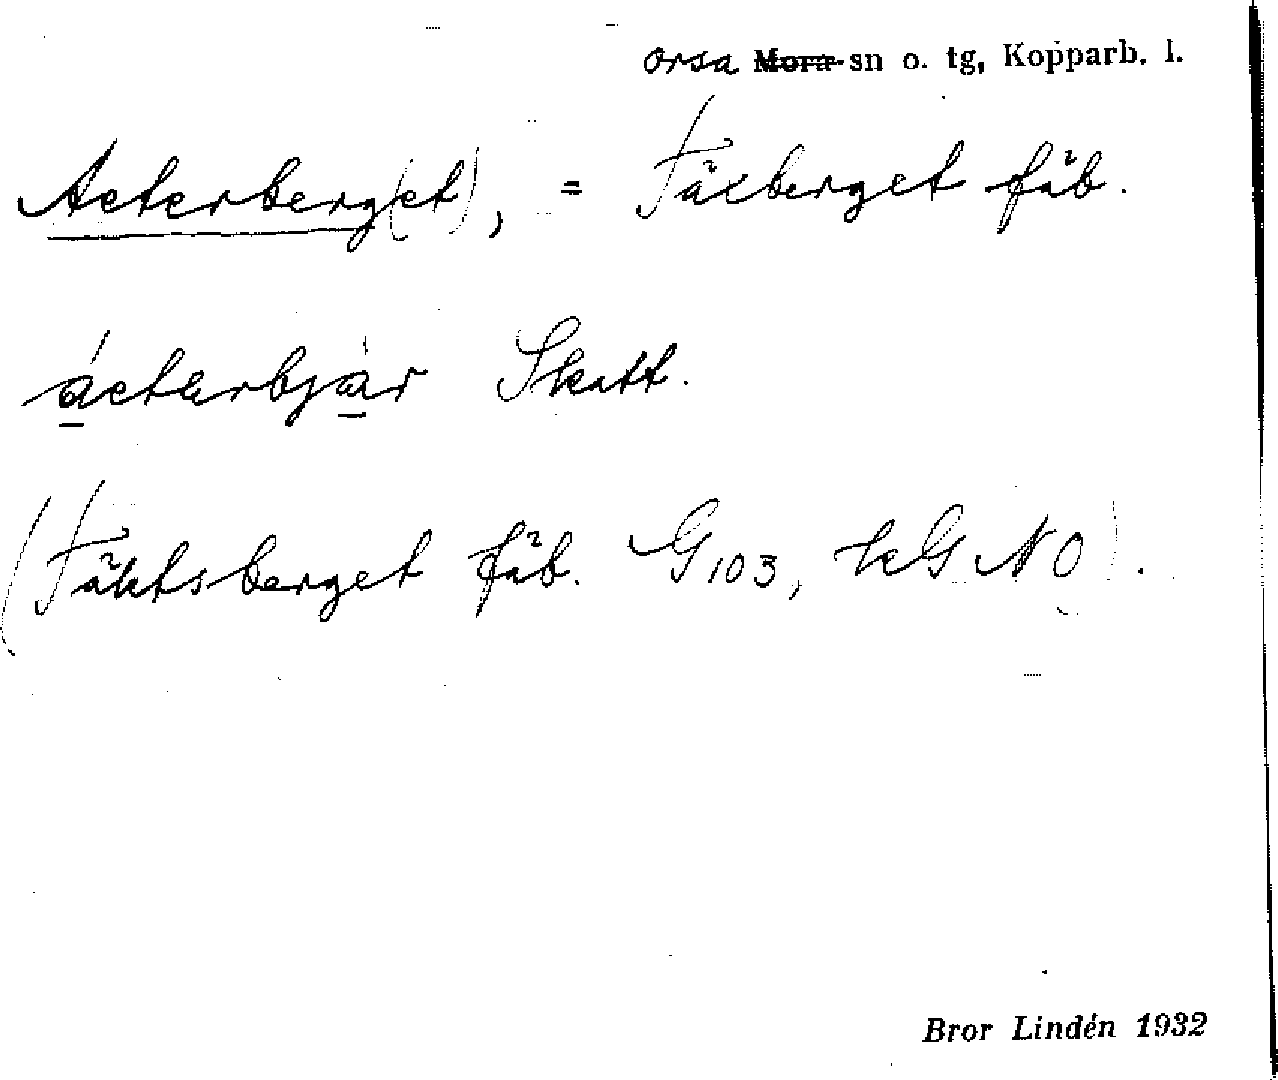 Orsa ~~Mora~~ sn o. tg, Kopparb. l.
Aeterberg(et), = Fäxberget fäb.
áeterbjàr Skatt.
(Fäktsberget fäb. G103, kG NO).
Bror Lindén 1932